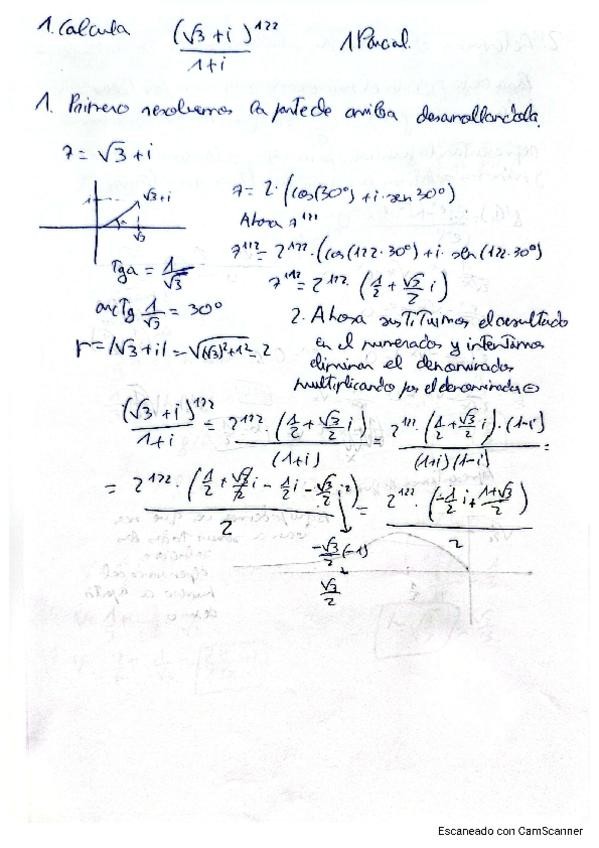 1. Calcula (√3 + i)^122 / 1+i 1 Parcial.
1. Primero resolvemos la parte de arriba desarrollandola.
z = √3 + i
√3+i
1
√3
z = 2·(cos(30°) + i·sen 30°)
Ahora z^122
Tga = 1/√3
z^122 = 2^122·(cos(122·30°) + i·sen(122·30°)
arcTg 1/√3 = 30°
z^122 = 2^122·(1/2 + √3/2 i)
r = |√3+i| = √((√3)²+1² 2
2. Ahora sustituimos el resultado
en el numerador y intentamos
eliminar el denominador
multiplicando por el denominador ⊖
(√3+i)^122 / 1+i = 2^122·(1/2+√3/2 i) / (1+i) = 2^122·(1/2+√3/2 i)·(1-i) / (1+i)(1-i) =
= 2^122·(1/2+√3/2 i - 1/2 i - √3/2 i²) / 2 = 2^122·(-1/2 i + 1+√3/2) / 2
-√3/2 (-1)
√3/2
Escaneado con CamScanner